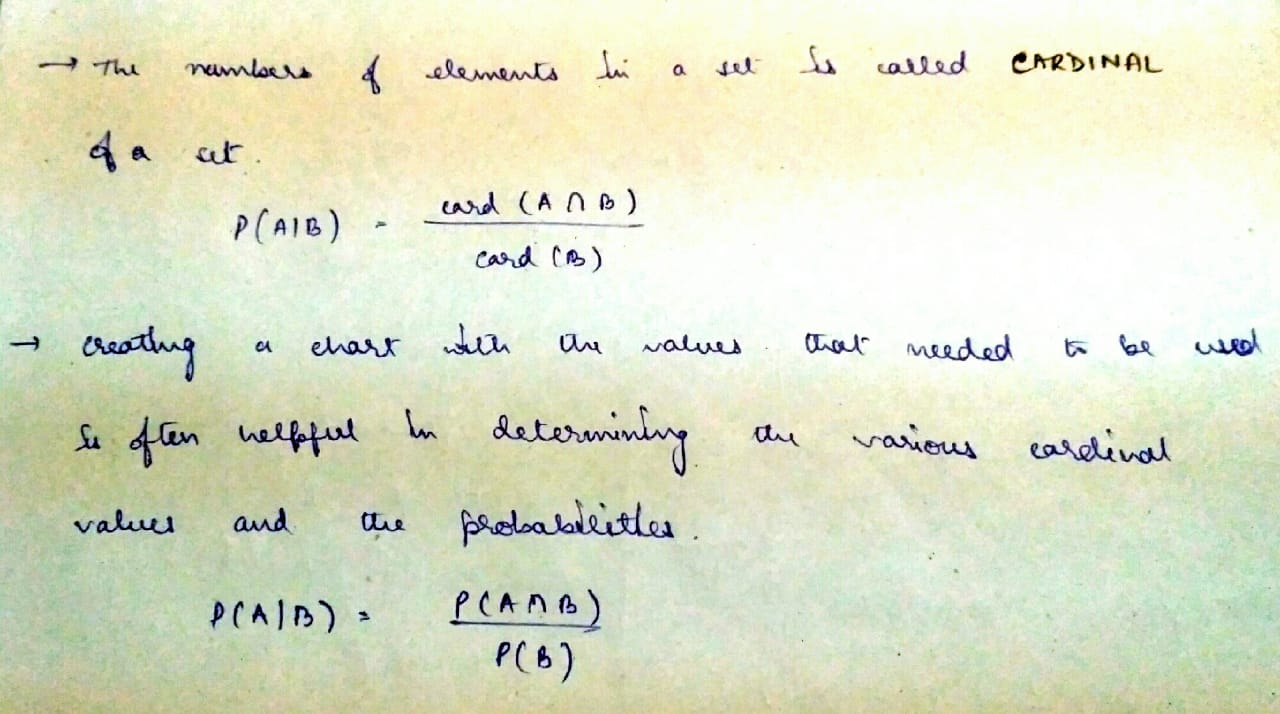 → The numbers of elements in a set is called CARDINAL
of a set.
P(A|B) = card (A ∩ B) / card (B)
→ creating a chart with the values that needed to be used
is often helpful in determining the various cardinal
values and the probabilities.
P(A|B) = P(A ∩ B) / P(B)